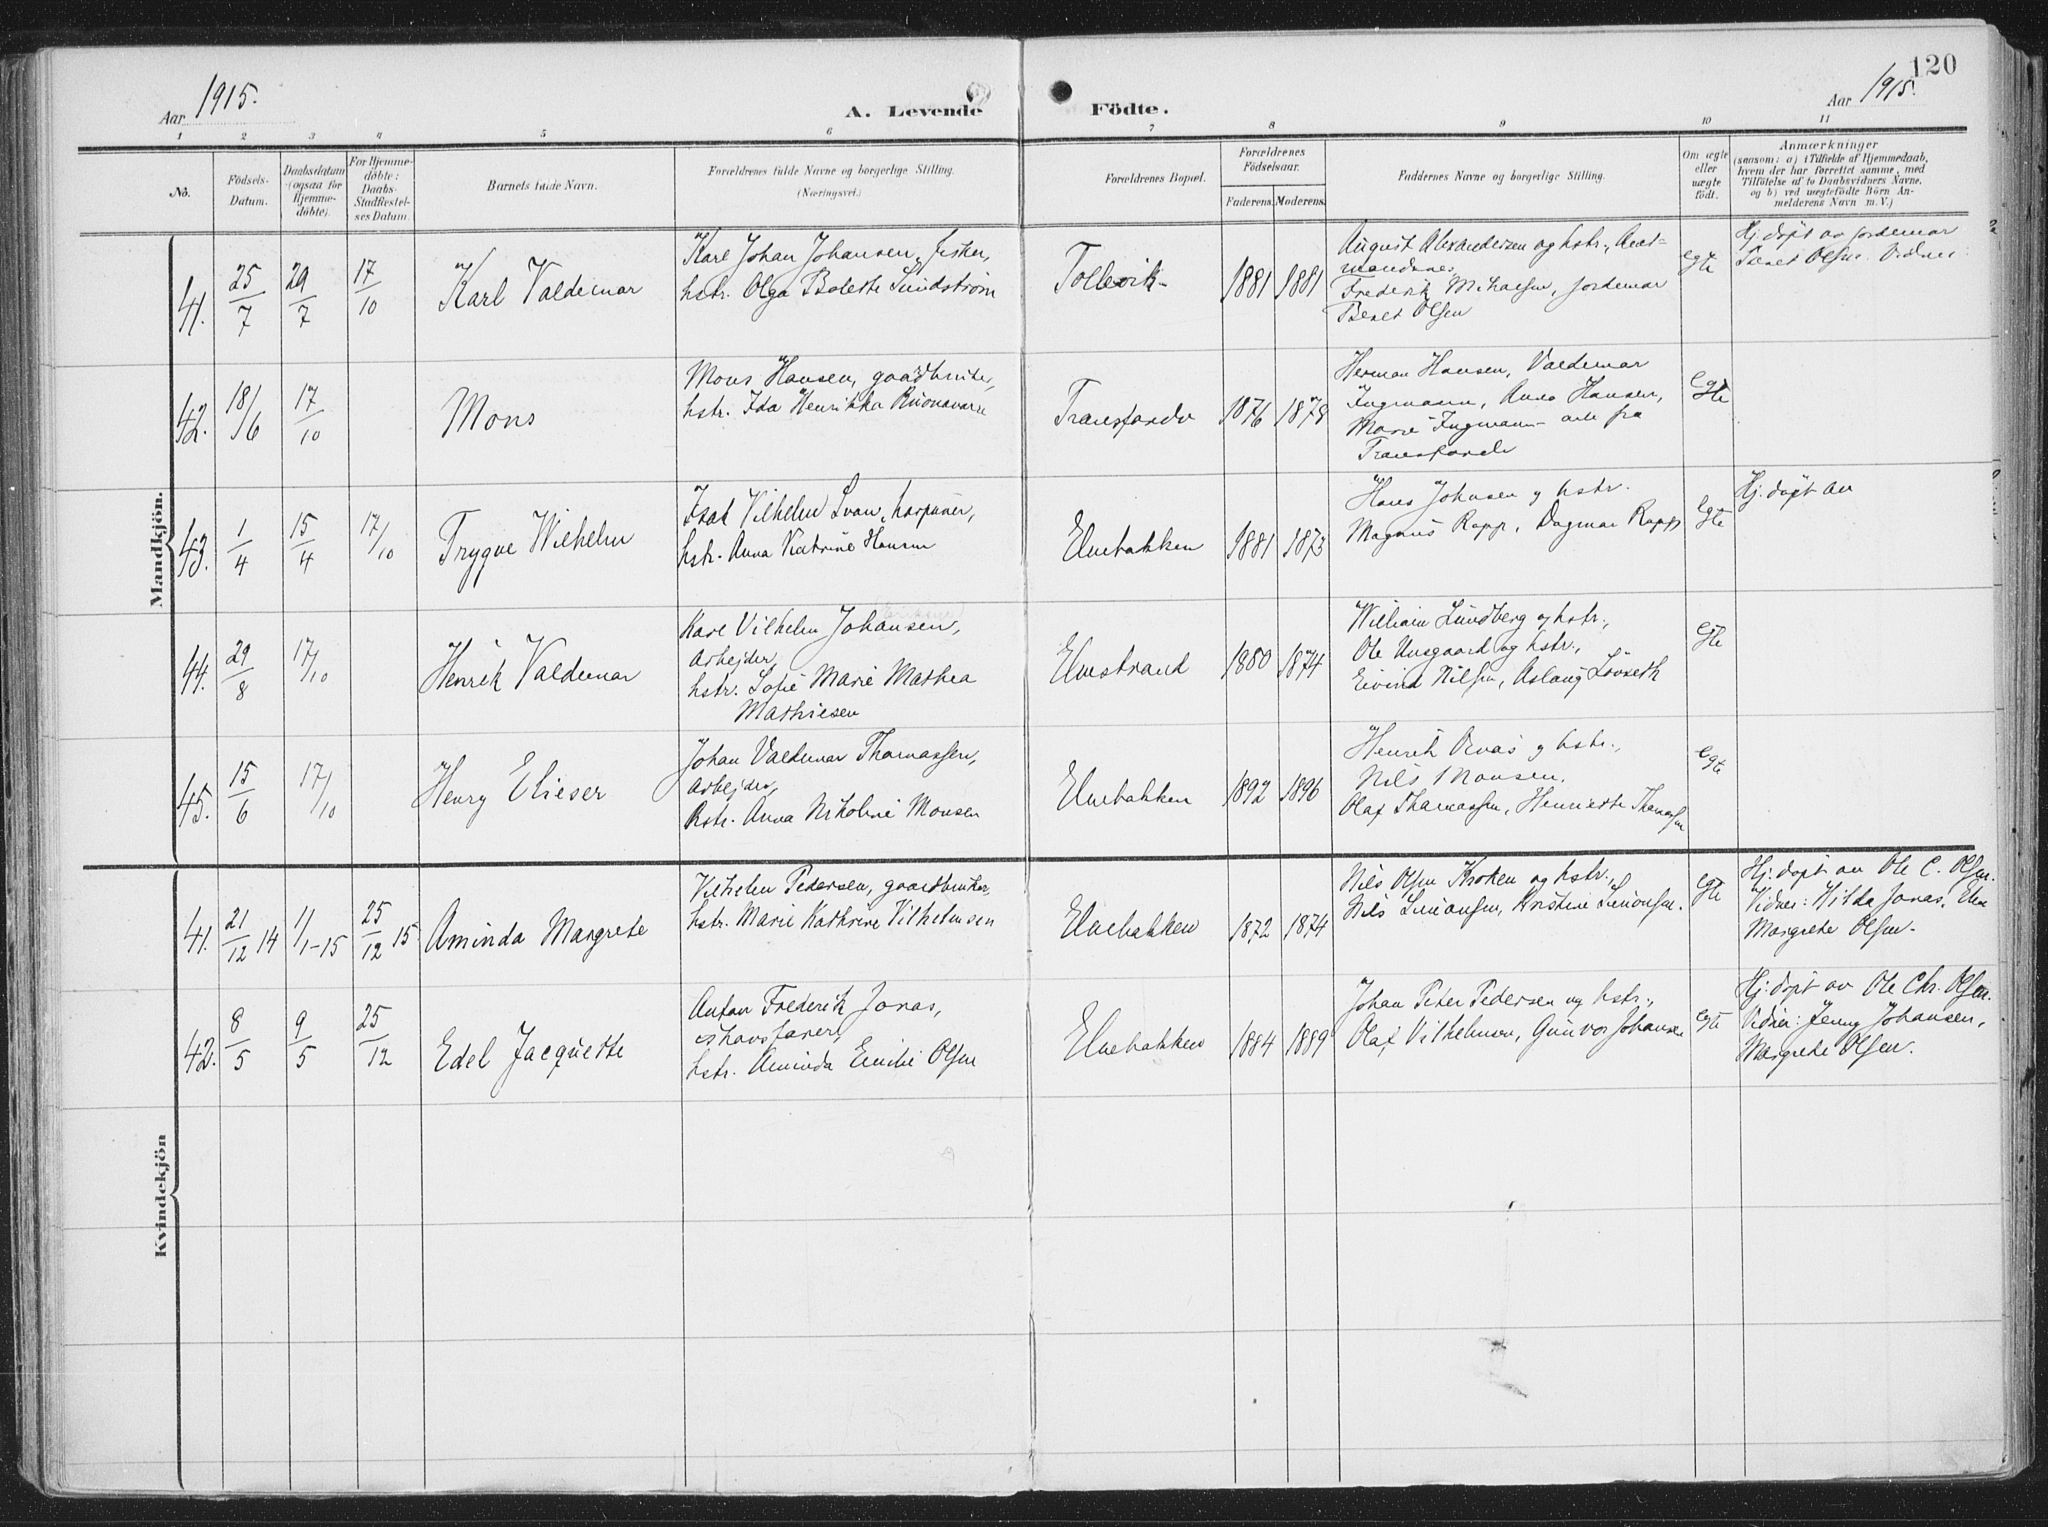 120
Aar 1915.
A. Levende Födte.
Aar 1915.
1 2 3 4 5 6 7 8 9 10 11
No.
Födsels-
Datum.
Daabsdatum
(ogsaa for
Hjemme-
døbte).
For Hjemme-
döbte:
Daabs-
Stadfestel-
ses Datum.
Barnets fulde Navn.
Forældrenes fulde Navne og borgerlige Stilling.
(Næringsvei.)
Forældrenes Bopæl.
Forældrenes
Födselsaar.
Faderens. Moderens.
Faddernes Navne og borgerlige Stilling.
Om ægte
eller
uægte
født.
Anmærkninger
(saasom: a) i Tilfælde af Hjemmedaab,
hvem der har forrettet samme, med
Tilföielse af to Daabsvidners Navne,
og b) ved uægtefödte Börn An-
melderens Navn m. V.)
Mandkjön.
41. 25/7 29/7 17/10 Karl Valdemar
Karl Johan Johansen, fisker,
hstr. Olga Bolette Sundström
Tollevik 1881 1881
August Alexandersen og hstr.,
Frederik Mikalsen, jordemor
Beret Olsen
egte
Hj. döpt av jordemor
Beret Olsen. Vidner:
42. 18/6 17/10 Mons
Mons Hansen, gaardbruker,
hstr. Ida Henrikka Ruonavara
Transfarelv 1876 1878
Herman Hansen, Valdemar
Ingmann, Anna Hansen,
Marie Ingmann - alle fra
Transfarelv
egte
43. 1/4 15/4 17/10 Trygve Wilhelm
Isak Vilhelm Svan, harpuner,
hstr. Anna Katrine Hansen
Elvebakken 1881 1873
Hans Johnsen og hstr.
Magnus Rapp, Dagmar Rapp
egte
Hj. döpt av
44. 29/8 17/10 Henrik Valdemar
Karl Vilhelm Johansen,
Arbejder,
hstr. Sofie Marie Mathea
Mathiesen
Elvestrand 1880 1874
William Lundberg og hstr.,
Ole Unsgaard og hstr.,
Eivind Nilsen, Aslaug Lövseth
egte
45. 15/6 17/10 Henry Elieser
Johan Valdemar Thomassen,
Arbejder,
hstr. Anna Nikoline Monsen
Elvebakken 1892 1896
Henrik og hstr.,
Nils Monsen.
Olaf Thomassen, Henriette Thomassen
egte
Kvindekjön
41. 21/12 14 1/1-15 25/12 15 Aminda Margrete
Vilhelm Pedersen, gaardbruker,
hstr. Marie Kathrine Vilhelmsen
Elvebakken 1872 1874
Nils Olsen Kroken og hstr.,
Nils Simonsen, Kristine Simonsen.
egte
Hj. döpt av Ole C. Olsen.
Vidner: Hilda Jonas,
Margrete Olsen.
42. 8/5 9/5 25/12 Edel Jacquette
Anton Frederik Jonas,
ishavsfarer,
hstr. Aminda Emilie Olsen
Elvebakken 1884 1889
Johan Peter Pedersen og hstr.,
Olaf Vilhelmsen, Gunvor Johansen
egte
Hj. döpt av Ole Chr. Olsen.
Vidner: Jenny Johansen,
Margrete Olsen.